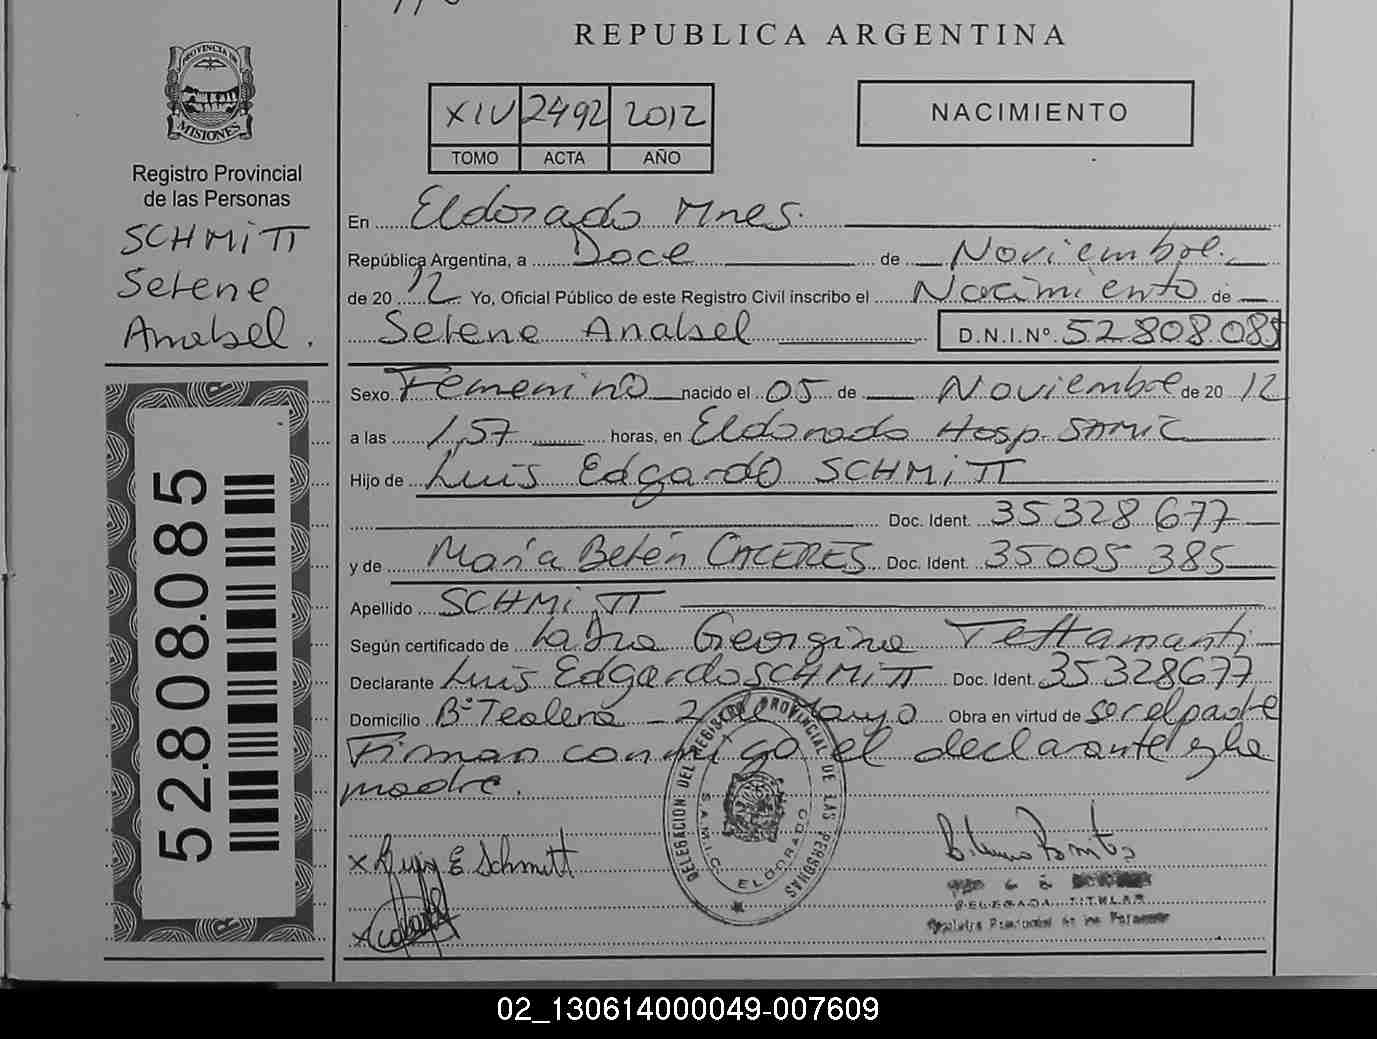 REPUBLICA ARGENTINA
PROVINCIA DE
MISIONES
Registro Provincial
de las Personas
SCHMITT
Selene
Anabel.
XIV 2492 2012
TOMO ACTA AÑO
NACIMIENTO
En Eldorado Mnes.
República Argentina, a Doce de Noviembre.
de 2012 Yo, Oficial Público de este Registro Civil inscribo el Nacimiento de
Selene Anabel D.N.I.Nº 52.808.085
Sexo Femenino nacido el 05 de Noviembre de 2012
a las 1,57 horas, en Eldorado Hosp. SAMIC
Hijo de Luis Edgardo SCHMITT
Doc. Ident. 35 328 677
y de María Belén CACERES Doc. Ident. 35005 385
Apellido SCHMITT
Según certificado de La Dra Georgina Tettamanti
Declarante Luis Edgardo SCHMITT Doc. Ident. 35328677
Domicilio Bº Teolera - 2 de Mayo Obra en virtud de ser el padre
Firman conmigo el declarante y la
madre.
52.808.085
x Luis E Schmitt
DELEGACION DEL REGISTRO PROVINCIAL DE LAS PERSONAS
S.A.M.I.C. ELDORADO
DELEGADA TITULAR
Registro Provincial de las Personas
02_130614000049-007609